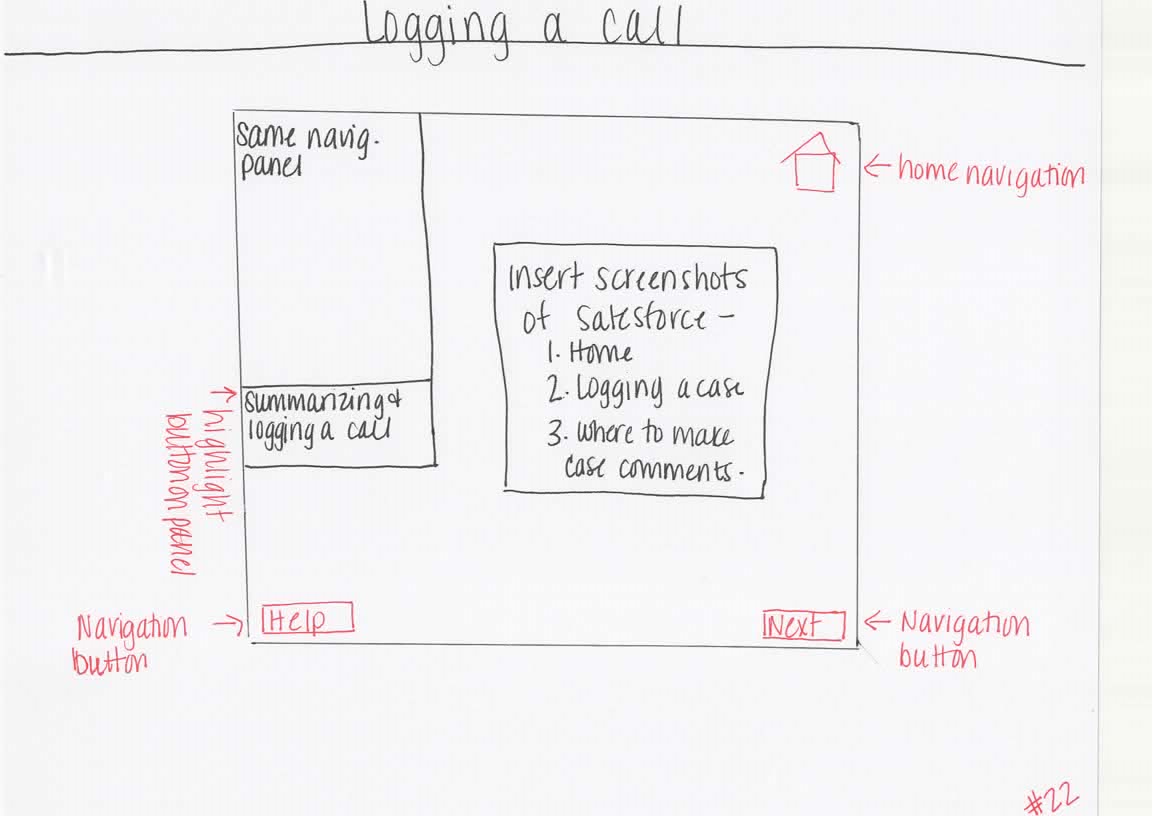 Logging a call
Same navig.
panel
← home navigation
Insert screenshots
of Salesforce –
1. Home
2. Logging a case
3. Where to make
case comments.
Summarizing &
logging a call
→ highlight
button on panel
Navigation →
button
Help
Next
← Navigation
button
#22